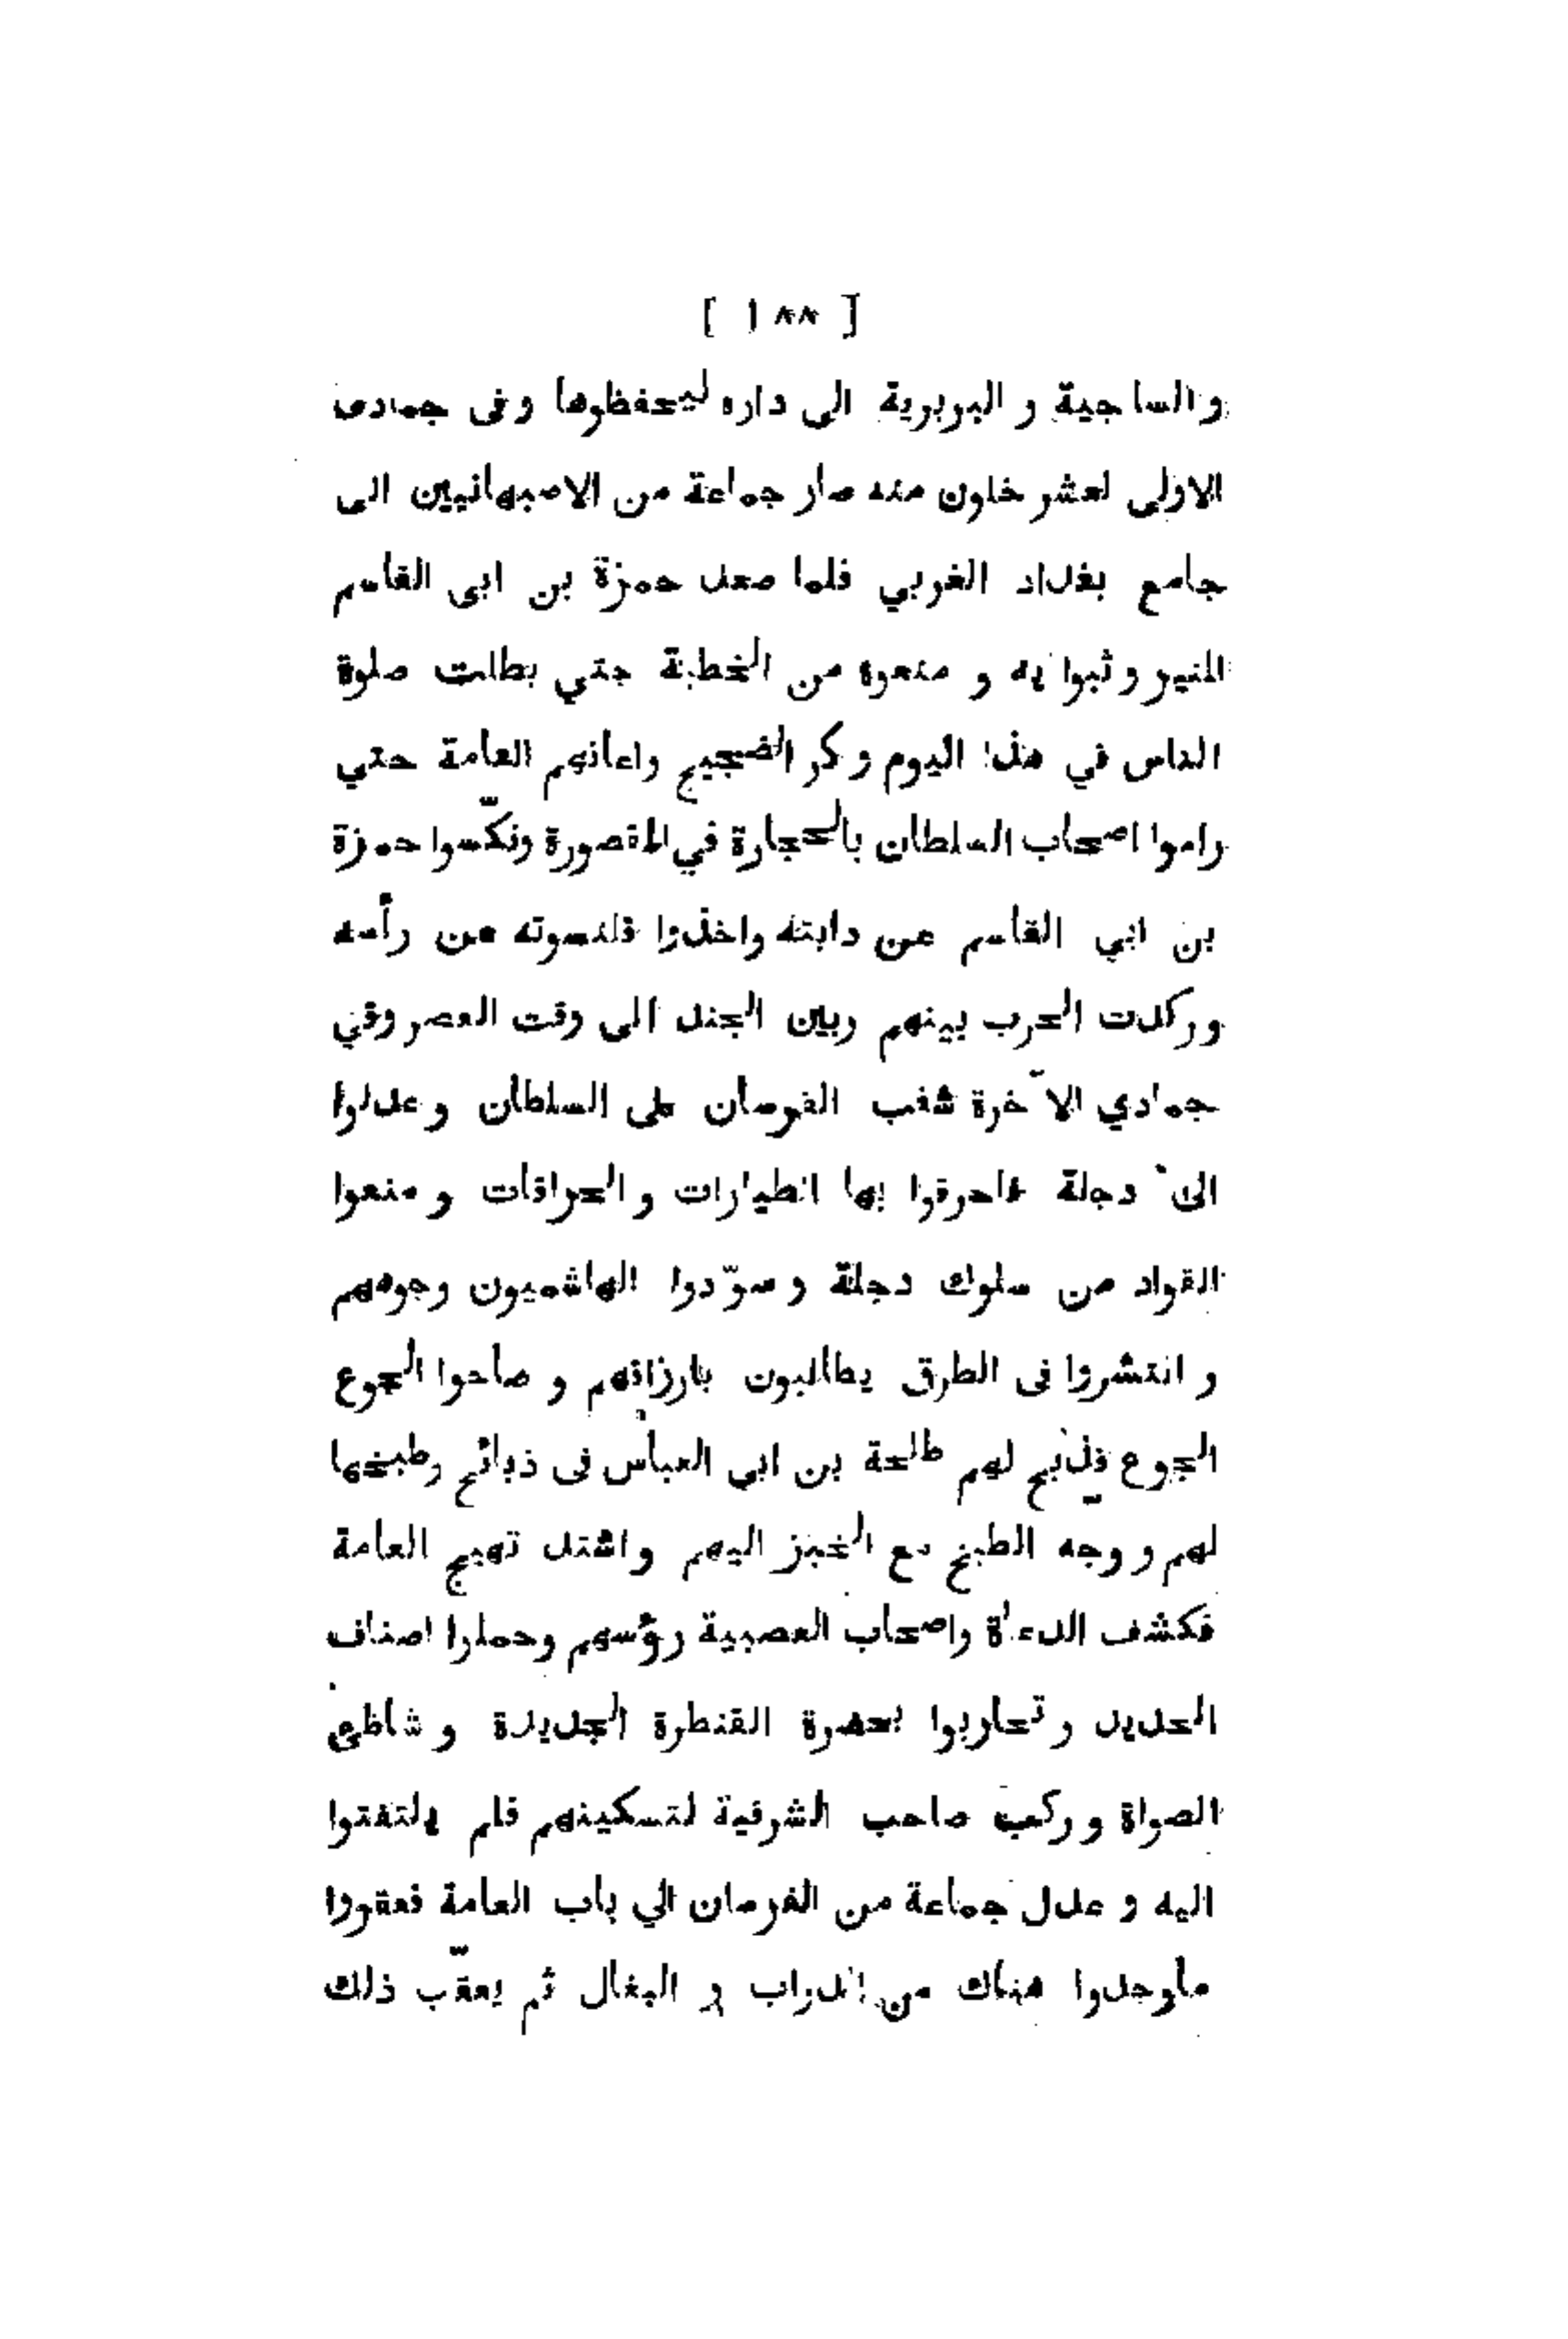 [ ١٨٨ ]
والساجية و البربرية الى داره ليحفظوها وفى جمادى
الاولى لعشر خلون منه صار جماعة من الاصبهانيين الى
جامع بغداد الغربي فلما صعد حمزة بن ابى القاسم
المنبر وثبوا به و منعوه من الخطبة حتي بطلت صلوة
الناس في هذا اليوم وكر الضجيج واعانهم العامة حتي
راموا اصحاب السلطان بالحجارة في المقصورة ونكّسوا حمزة
بن ابي القاسم عن دابته واخذوا قلنسوته عن رأسه
وركدت الحرب بينهم وبين الجند الى وقت العصر وفي
جمادي الآخرة شغب الفرسان على السلطان و عدلوا
الى دجلة فاحرقوا بها الطيارات و الحراقات و منعوا
القواد من سلوك دجلة و سوّدوا الهاشميون وجوههم
و انتشروا فى الطرق يطالبون بارزاقهم و صاحوا الجوع
الجوع فذبح لهم طلحة بن ابى العباس فى ذبائح وطبخها
لهم و وجه الطبخ مع الخبز اليهم واشتد تهيج العامة
فكشف الدعاة واصحاب العصبية رؤسهم وحملوا اصناف
الحديد و تحاربوا بحضرة القنطرة الجديدة و شاطىء
الصراة و ركب صاحب الشرقية لتسكينهم فلم يلتفتوا
اليه و عدل جماعة من الفرسان الي باب العامة فعقروا
ماوجدوا هناك من الدواب و البغال ثم يعقّب ذلك